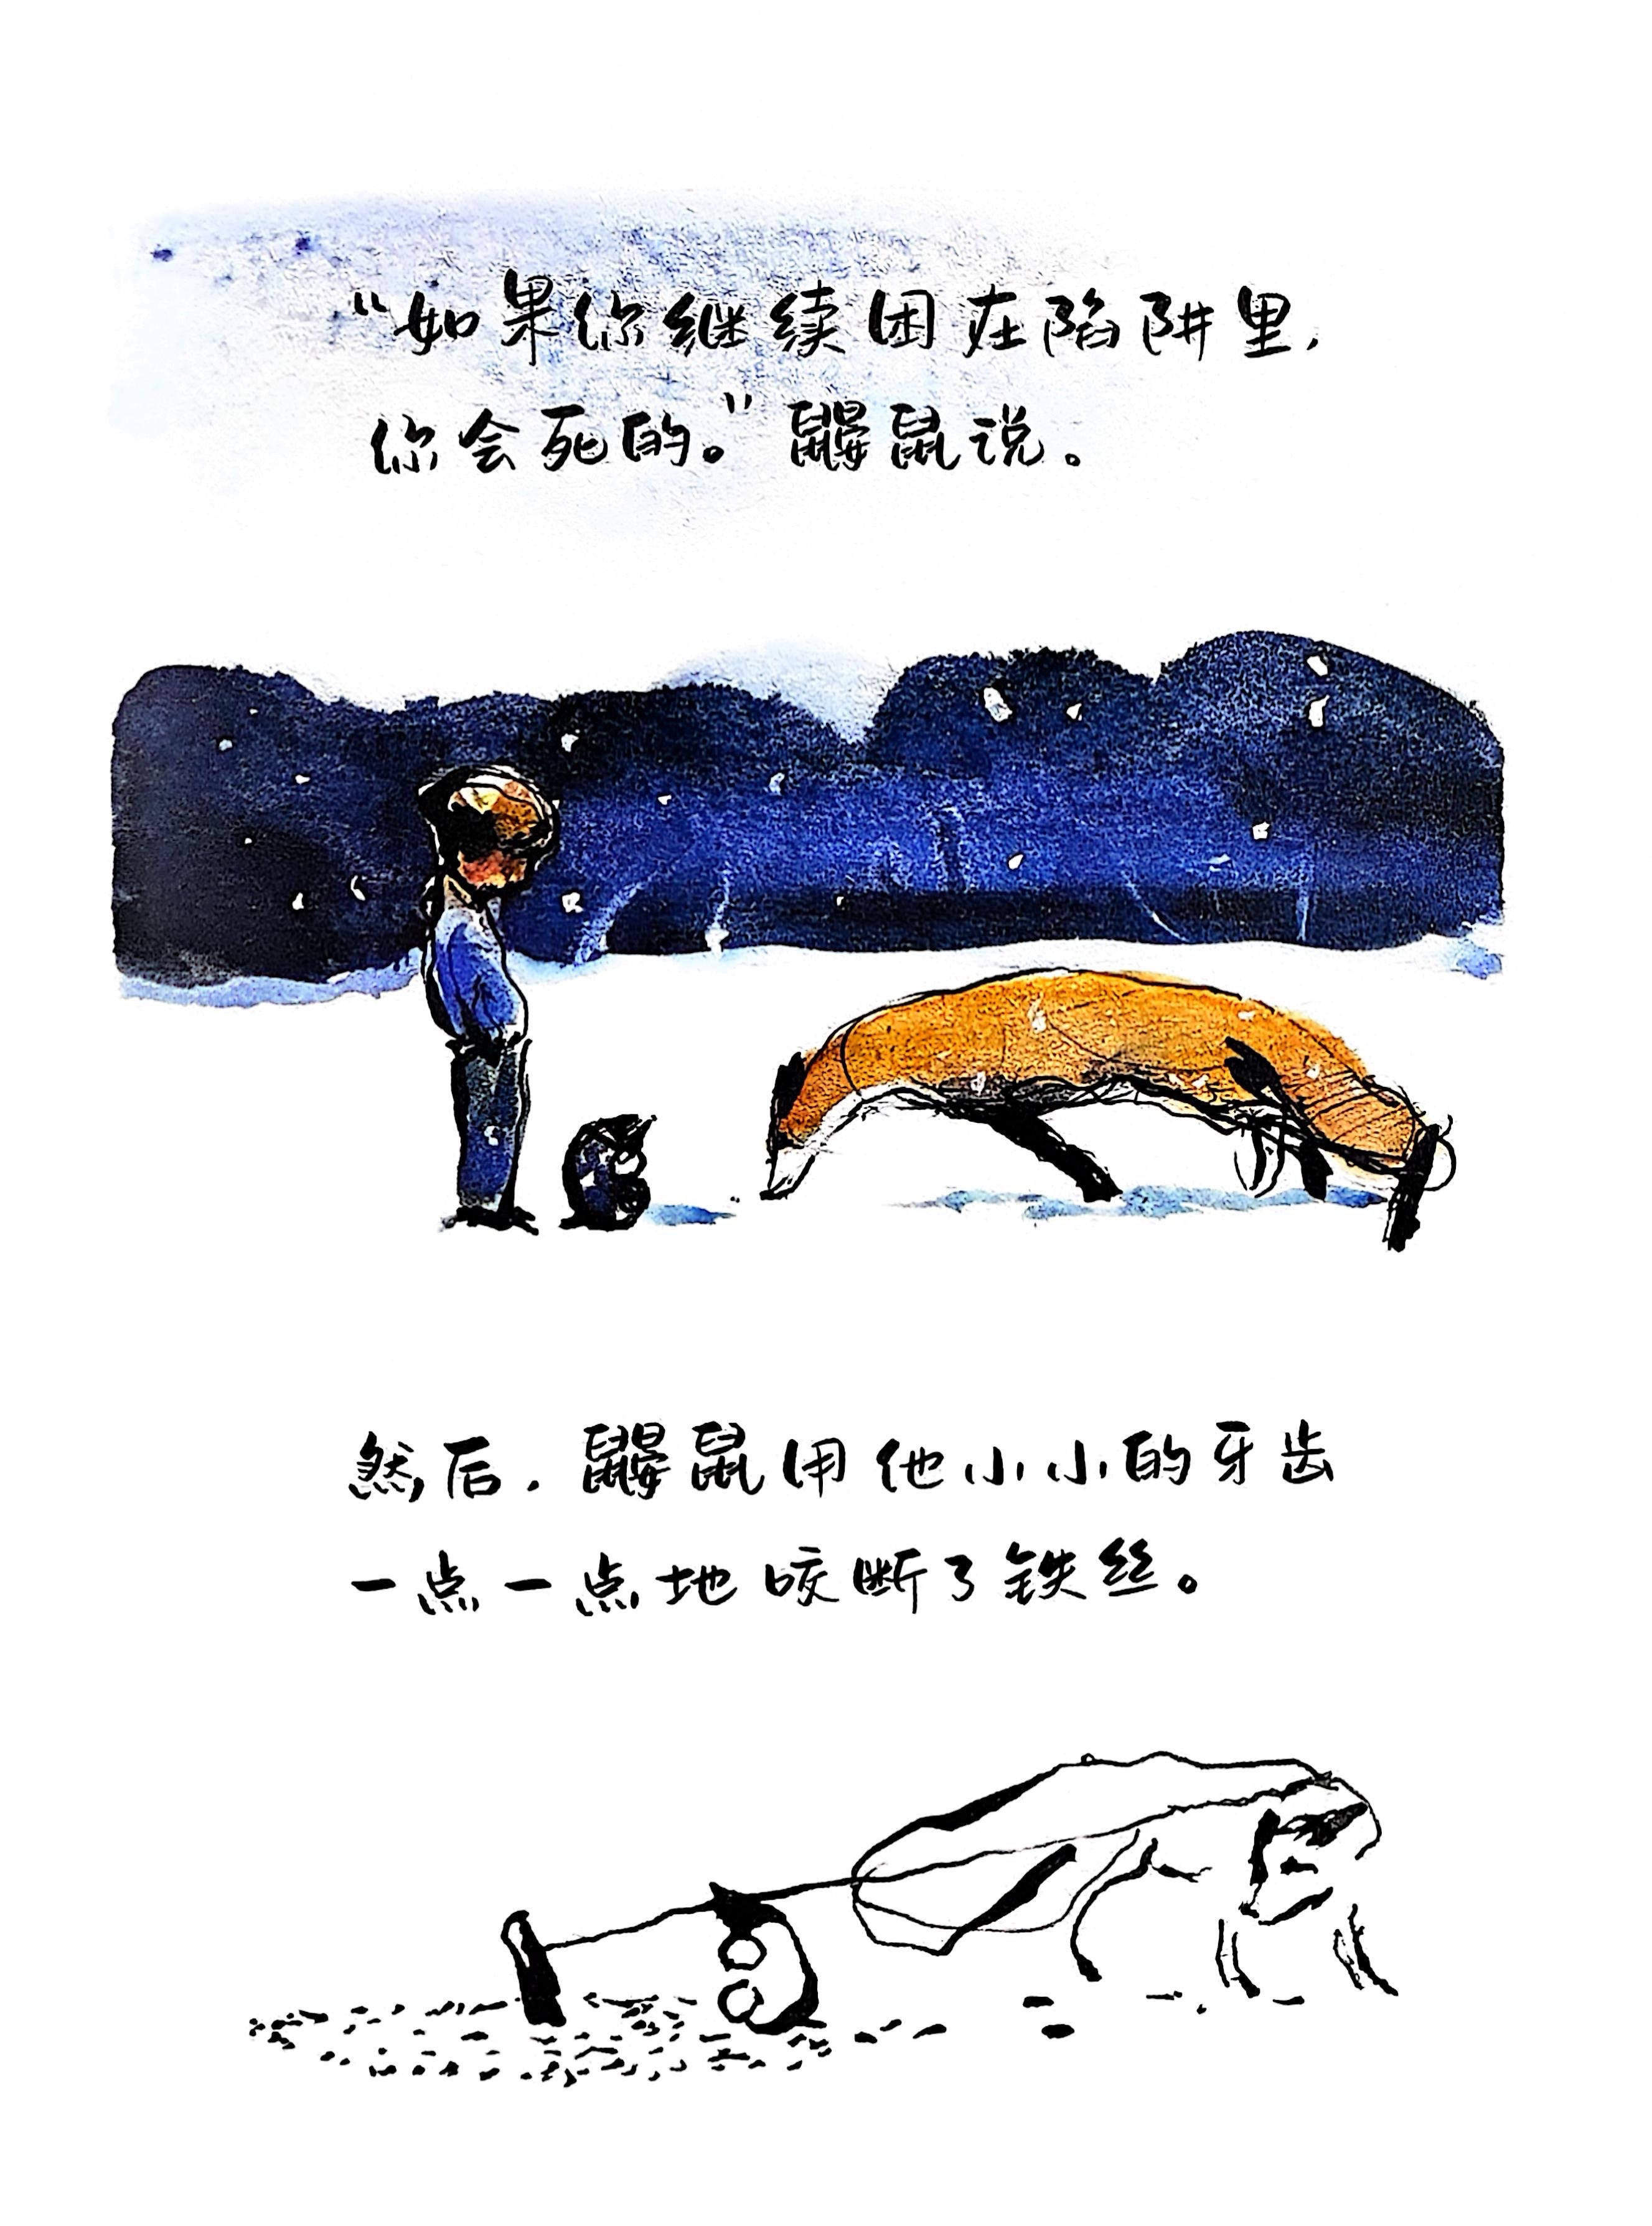 “如果你继续困在陷阱里，
你会死的。”鼹鼠说。
然后，鼹鼠用他小小的牙齿
一点一点地咬断了铁丝。